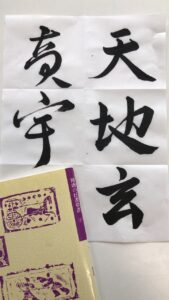 天地玄
黄宇